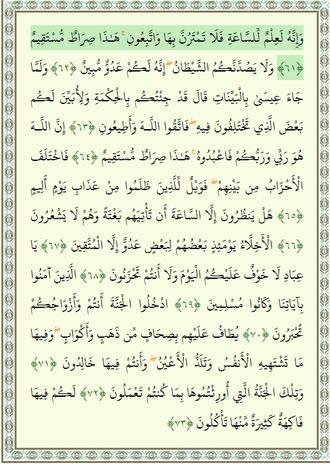 وَإِنَّهُ لَعِلْمٌ لِّلسَّاعَةِ فَلَا تَمْتَرُنَّ بِهَا وَاتَّبِعُونِ ۚ هَـٰذَا صِرَاطٌ مُّسْتَقِيمٌ
﴿٦١﴾ وَلَا يَصُدَّنَّكُمُ الشَّيْطَانُ ۖ إِنَّهُ لَكُمْ عَدُوٌّ مُّبِينٌ ﴿٦٢﴾ وَلَمَّا
جَاءَ عِيسَىٰ بِالْبَيِّنَاتِ قَالَ قَدْ جِئْتُكُم بِالْحِكْمَةِ وَلِأُبَيِّنَ لَكُم
بَعْضَ الَّذِي تَخْتَلِفُونَ فِيهِ ۖ فَاتَّقُوا اللَّـهَ وَأَطِيعُونِ ﴿٦٣﴾ إِنَّ اللَّـهَ
هُوَ رَبِّي وَرَبُّكُمْ فَاعْبُدُوهُ ۚ هَـٰذَا صِرَاطٌ مُّسْتَقِيمٌ ﴿٦٤﴾ فَاخْتَلَفَ
الْأَحْزَابُ مِن بَيْنِهِمْ ۖ فَوَيْلٌ لِّلَّذِينَ ظَلَمُوا مِنْ عَذَابِ يَوْمٍ أَلِيمٍ
﴿٦٥﴾ هَلْ يَنظُرُونَ إِلَّا السَّاعَةَ أَن تَأْتِيَهُم بَغْتَةً وَهُمْ لَا يَشْعُرُونَ
﴿٦٦﴾ الْأَخِلَّاءُ يَوْمَئِذٍ بَعْضُهُمْ لِبَعْضٍ عَدُوٌّ إِلَّا الْمُتَّقِينَ ﴿٦٧﴾ يَا
عِبَادِ لَا خَوْفٌ عَلَيْكُمُ الْيَوْمَ وَلَا أَنتُمْ تَحْزَنُونَ ﴿٦٨﴾ الَّذِينَ آمَنُوا
بِآيَاتِنَا وَكَانُوا مُسْلِمِينَ ﴿٦٩﴾ ادْخُلُوا الْجَنَّةَ أَنتُمْ وَأَزْوَاجُكُمْ
تُحْبَرُونَ ﴿٧٠﴾ يُطَافُ عَلَيْهِم بِصِحَافٍ مِّن ذَهَبٍ وَأَكْوَابٍ ۖ وَفِيهَا
مَا تَشْتَهِيهِ الْأَنفُسُ وَتَلَذُّ الْأَعْيُنُ ۖ وَأَنتُمْ فِيهَا خَالِدُونَ ﴿٧١﴾
وَتِلْكَ الْجَنَّةُ الَّتِي أُورِثْتُمُوهَا بِمَا كُنتُمْ تَعْمَلُونَ ﴿٧٢﴾ لَكُمْ فِيهَا
فَاكِهَةٌ كَثِيرَةٌ مِّنْهَا تَأْكُلُونَ ﴿٧٣﴾